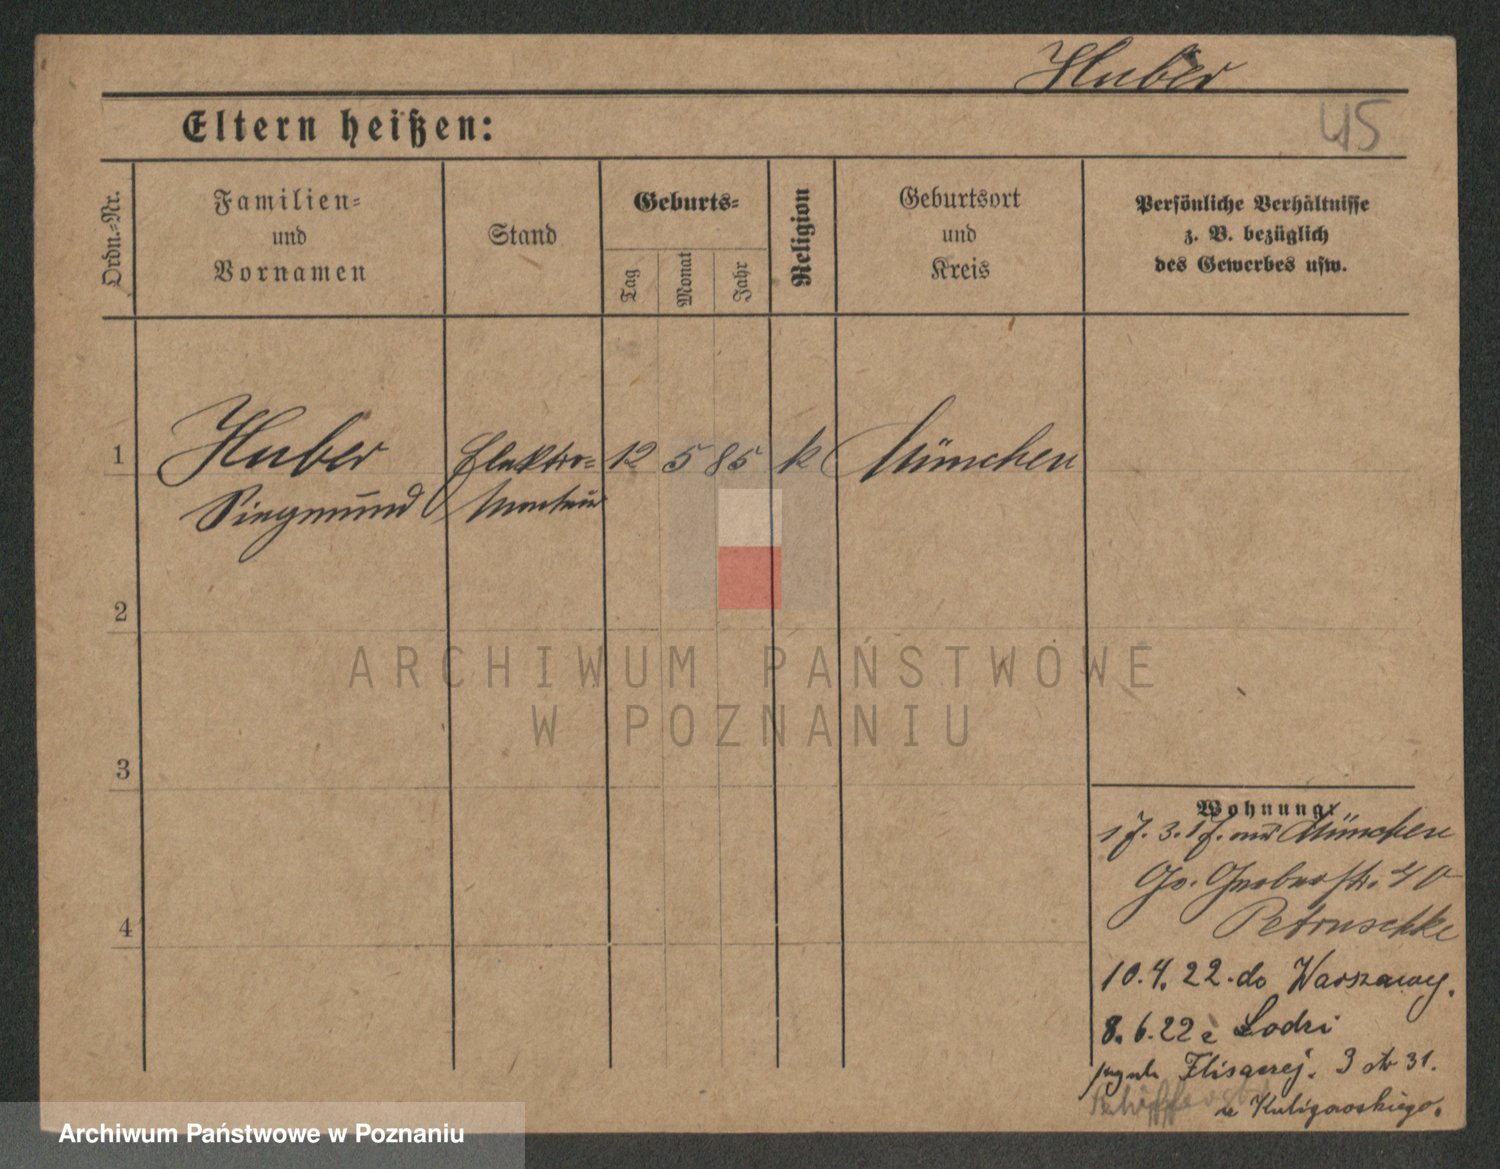 Huber
45
Eltern heißen:
Ordn.-Nr.
Familien-
und
Vornamen
Stand
Geburts-
Tag
Monat
Jahr
Religion
Geburtsort
und
Kreis
Persönliche Verhältnisse
z. B. bezüglich
des Gewerbes usw.
1
Huber Elektro- 12 5 85 k München
Siegmund Monteur
2
3
4
Wohnung:
München
40
Petruschke
10.4.22 do Warszawy.
8.6.22 z Łodzi
3 31.
u
ARCHIWUM PAŃSTWOWE
W POZNANIU
Archiwum Państwowe w Poznaniu